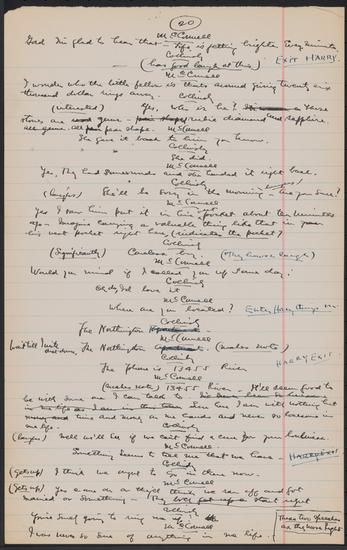 20
McConnell
God I'm glad to hear that - Life is getting brighter every minute
Collinby
(has good laugh at this) EXIT HARRY.
McConnell
I wonder who the little fellow is that's around giving twenty six
thousand dollar rings away.
Collinby
(interested) Yes, who is he? These
stones are gems - rubie diamond and sapphire.
all gems. all
McConnell
She gave it back to him you know.
Collinby
She did.
McConnell
Yes, My and she handed it right back.
Collinby
(laughs) She'll be sorry in the morning - Are you sure?
McConnell
Yes I saw him put it in his pocket about ten minutes
ago - Imagine carrying a valuable thing like that in your
his vest pocket right here (indicates the pocket)
Collinby
(Significantly) Careless boy (They have laugh)
McConnell
Would you mind if I called you up some day?
Collinby
Oh, do, I'd love it
McConnell
Where are you located? Enter Harry
Collinby
The Northington
McConnell
Wait till I write
down. The Northington (makes note)
Collinby
The phone is 13455 River HARRY EXIT
McConnell
(makes note) 13455 River - It'll seem good to
be with some one I can talk to -
See here I am with nothing but
money and time and more on me hands and never so lonesome in
me life.
Collinby
(laughs) Well we'll see if we can't find a cure for your loneliness.
McConnell
Something seems to tell me that we have - HARRY EXIT
Collinby
(Gets up) I think we ought to go in there now.
McConnell
(Gets up) Yes come on or they'll think we ran off and got
married or something - start right
Collinby
You're not going to ring me up.
McConnell
I was never so sure of anything in me life.
These two speeches
as they move right